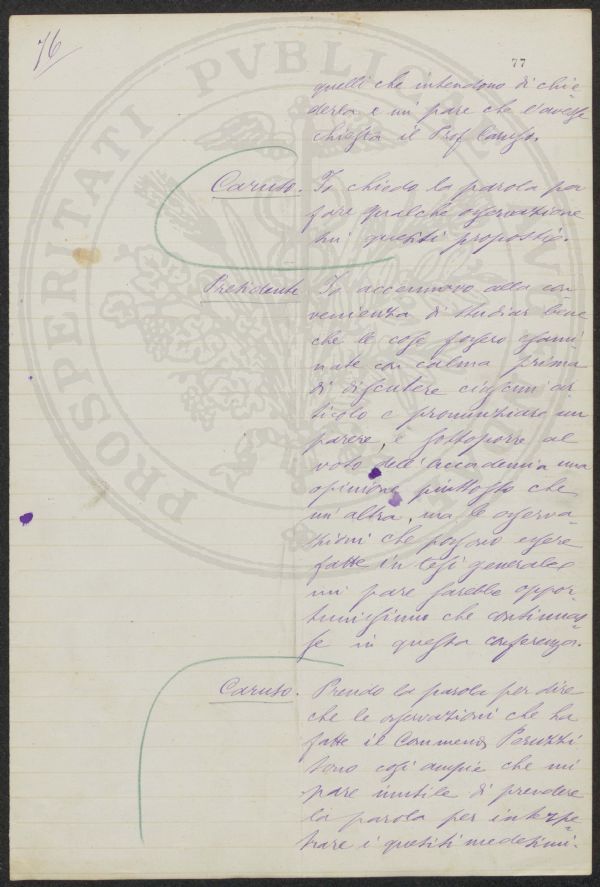 76
77
PROSPERITATI PVBLICAE
quelli che intendono di chie
derla e mi pare che l'avesse
chiesta il Prof Caruso.
Caruso. Io chiedo la parola per
fare qualche osservazione
sui quesiti proposti.
Presidente Io accennavo alla con
venienza di studiar bene
che le cose fossero esami
nate con calma prima
di discutere ciascun ar
ticolo e pronunziare un
parere, e sottoporre al
voto dell'accademia una
opinione piuttosto che
un'altra, ma le osserva-
zioni che possono essere
fatte in tesi generale
mi pare sarebbe oppor-
tunissimo che continuas-
se in questa conferenza.
Caruso. Prendo la parola per dire
che le osservazioni che ha
fatte il Commend. Peruzzi
sono così ampie che mi
pare inutile di prendere
la parola per interpe-
trare i quesiti medesimi.